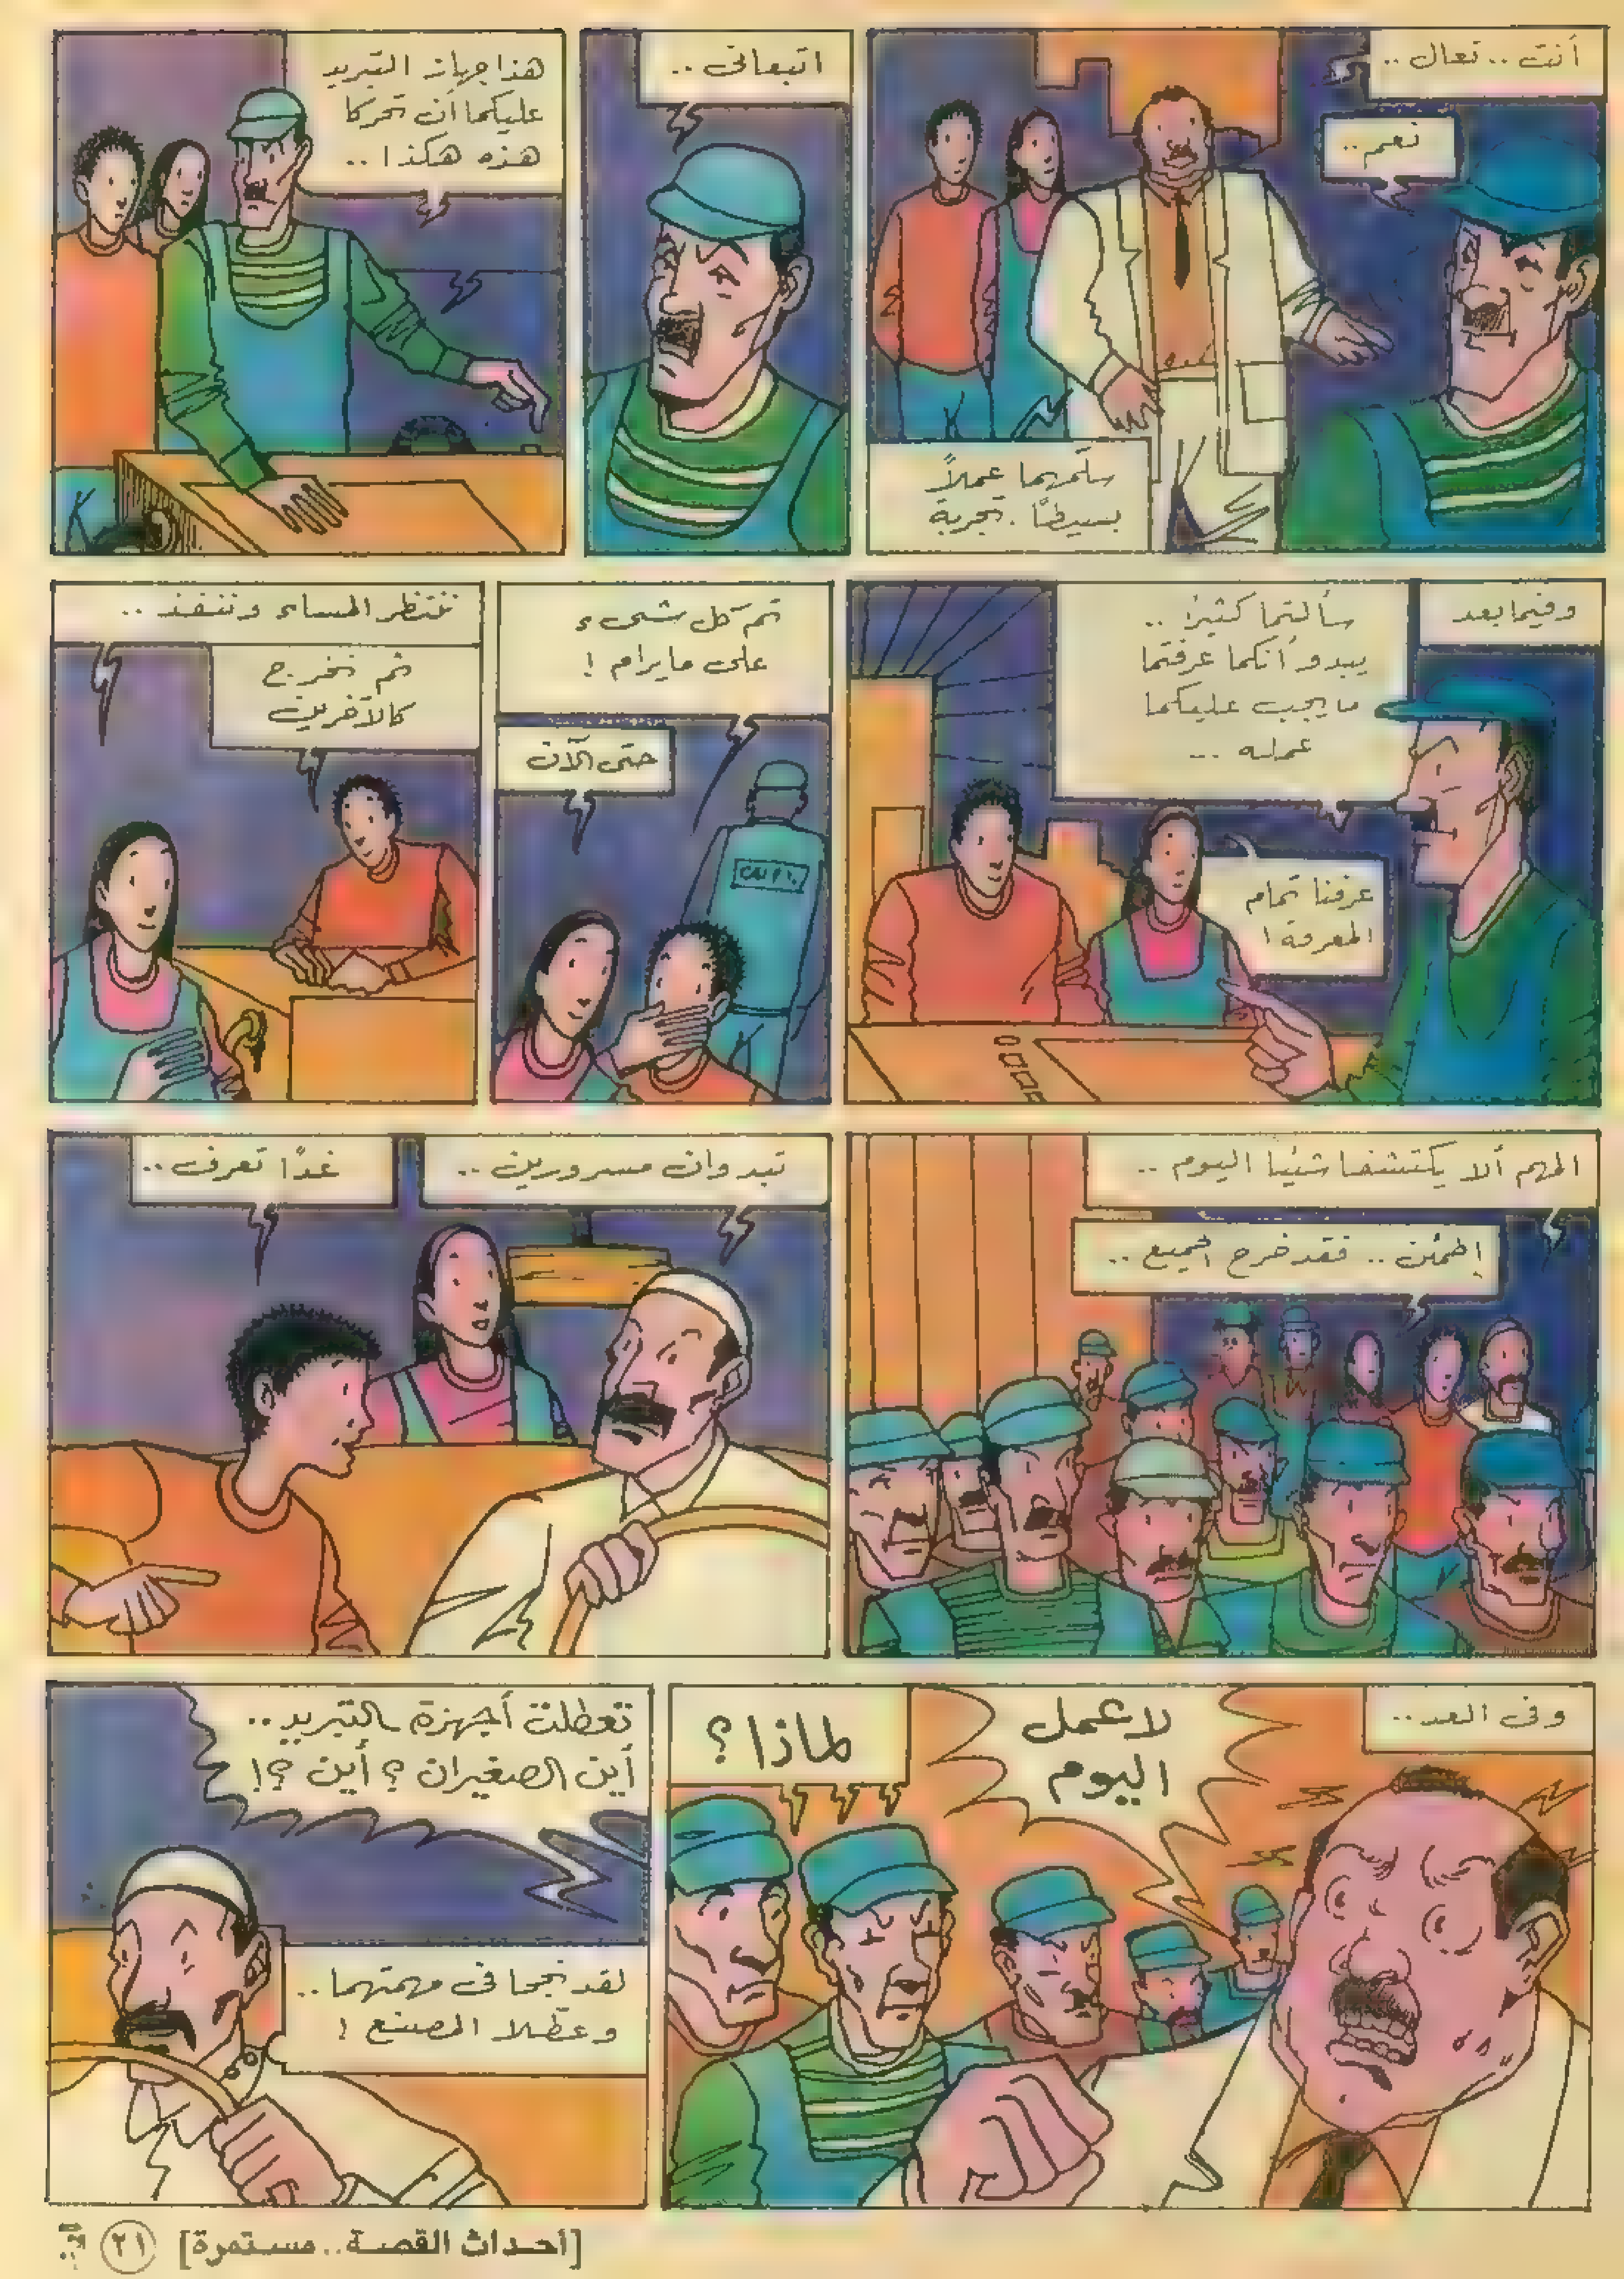 أنت .. تعال ..
نعم ..
سلمهما عملاً
بسيطًا . تجربة
اتبعانى ..
هذا جهاز التبريد
عليكما أن تحركا
هذه هكذا ..
وفيما بعد
سألتما كثيرًا ..
يبدو أنكما عرفتما
ما يجب عليكما
عمله ...
عرفنا تمام
المعرفة !
تم كل شىء
على ما يرام !
حتى الآن
ننتظر المساء وننفذ ..
ثم نخرج
كالآخرين
المهم ألا يكتشفا شيئا اليوم ..
إطمئن .. فقد خرج الجميع ..
تبدوان مسرورين ..
غدًا تعرف ..
وفى الغد ..
لا عمل
اليوم
لماذا ؟
تعطلت أجهزة التبريد ..
أين الصغيران ؟ أين ؟!
لقد نجحا فى مهمتهما ..
وعطلا المصنع !
[أحداث القصة .. مستمرة]
٢١